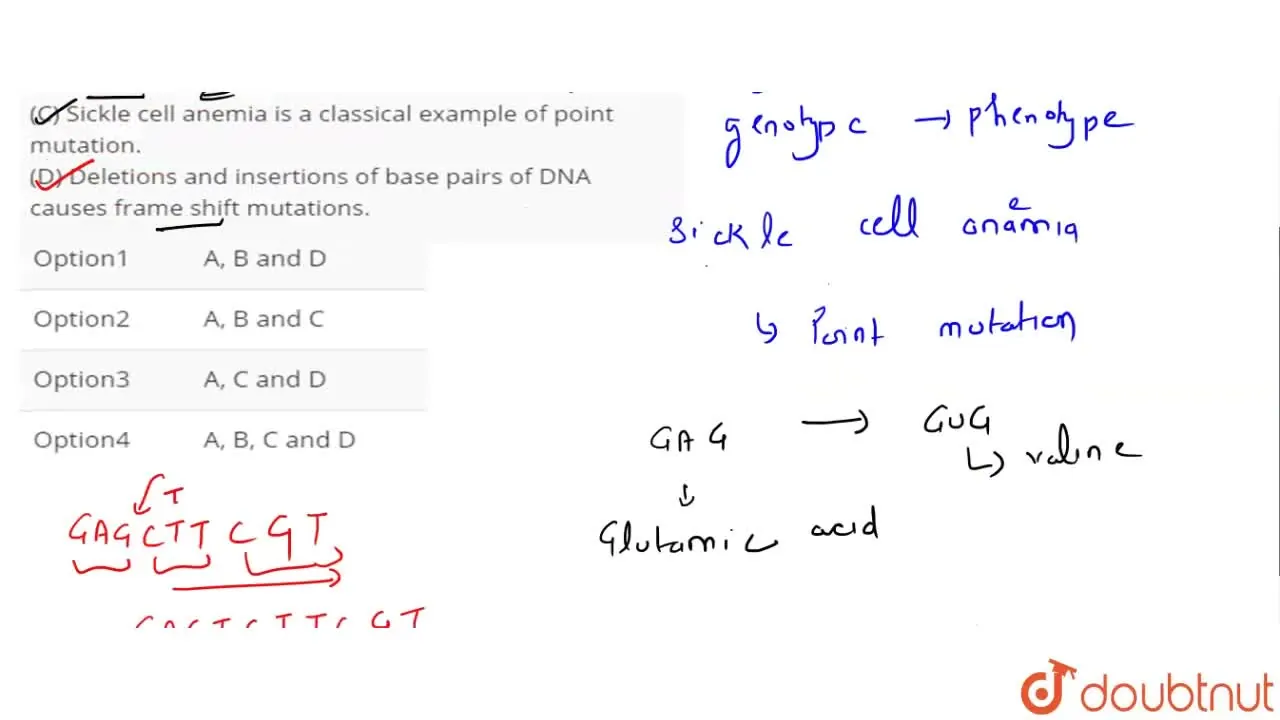 (C) Sickle cell anemia is a classical example of point
mutation.
(D) Deletions and insertions of base pairs of DNA
causes frame shift mutations.
Option1 A, B and D
Option2 A, B and C
Option3 A, C and D
Option4 A, B, C and D
T
GAG CTT CGT
genotype → phenotype
Sickle cell anamia
e
↳ Point mutation
GAG → GUG
↳ valine
↓
Glutamic acid
doubtnut